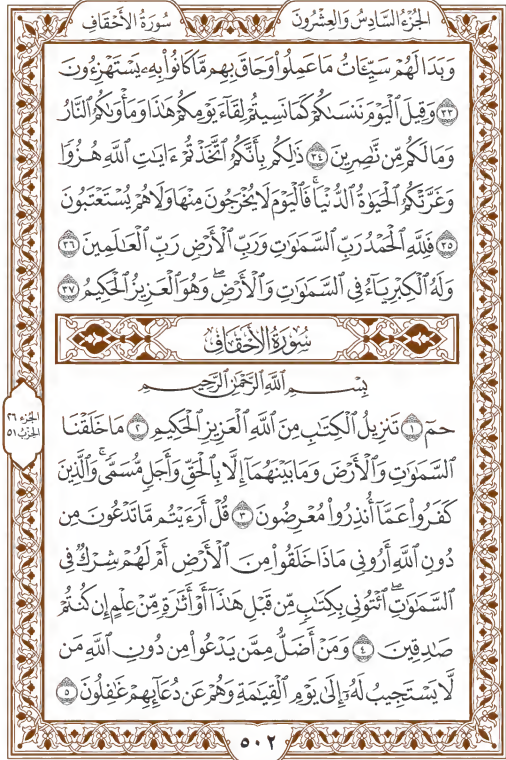 الجُزْءُ السَّادِسُ وَالعِشْرُونَ
سُورَةُ الأَحْقَافِ
وَبَدَا لَهُمْ سَيِّـَٔاتُ مَا عَمِلُوا۟ وَحَاقَ بِهِم مَّا كَانُوا۟ بِهِۦ يَسْتَهْزِءُونَ
٣٣ وَقِيلَ ٱلْيَوْمَ نَنسَىٰكُمْ كَمَا نَسِيتُمْ لِقَآءَ يَوْمِكُمْ هَٰذَا وَمَأْوَىٰكُمُ ٱلنَّارُ
وَمَا لَكُم مِّن نَّٰصِرِينَ ٣٤ ذَٰلِكُم بِأَنَّكُمُ ٱتَّخَذْتُمْ ءَايَٰتِ ٱللَّهِ هُزُوًا
وَغَرَّتْكُمُ ٱلْحَيَوٰةُ ٱلدُّنْيَا ۚ فَٱلْيَوْمَ لَا يُخْرَجُونَ مِنْهَا وَلَا هُمْ يُسْتَعْتَبُونَ
٣٥ فَلِلَّهِ ٱلْحَمْدُ رَبِّ ٱلسَّمَٰوَٰتِ وَرَبِّ ٱلْأَرْضِ رَبِّ ٱلْعَٰلَمِينَ ٣٦
وَلَهُ ٱلْكِبْرِيَآءُ فِى ٱلسَّمَٰوَٰتِ وَٱلْأَرْضِ ۖ وَهُوَ ٱلْعَزِيزُ ٱلْحَكِيمُ ٣٧
سُورَةُ الأَحْقَافِ
بِسْمِ ٱللَّهِ ٱلرَّحْمَٰنِ ٱلرَّحِيمِ
حمٓ ١ تَنزِيلُ ٱلْكِتَٰبِ مِنَ ٱللَّهِ ٱلْعَزِيزِ ٱلْحَكِيمِ ٢ مَا خَلَقْنَا
ٱلسَّمَٰوَٰتِ وَٱلْأَرْضَ وَمَا بَيْنَهُمَآ إِلَّا بِٱلْحَقِّ وَأَجَلٍ مُّسَمًّى ۚ وَٱلَّذِينَ
كَفَرُوا۟ عَمَّآ أُنذِرُوا۟ مُعْرِضُونَ ٣ قُلْ أَرَءَيْتُم مَّا تَدْعُونَ مِن
دُونِ ٱللَّهِ أَرُونِى مَاذَا خَلَقُوا۟ مِنَ ٱلْأَرْضِ أَمْ لَهُمْ شِرْكٌ فِى
ٱلسَّمَٰوَٰتِ ۖ ٱئْتُونِى بِكِتَٰبٍ مِّن قَبْلِ هَٰذَآ أَوْ أَثَٰرَةٍ مِّنْ عِلْمٍ إِن كُنتُمْ
صَٰدِقِينَ ٤ وَمَنْ أَضَلُّ مِمَّن يَدْعُوا۟ مِن دُونِ ٱللَّهِ مَن
لَّا يَسْتَجِيبُ لَهُۥٓ إِلَىٰ يَوْمِ ٱلْقِيَٰمَةِ وَهُمْ عَن دُعَآئِهِمْ غَٰفِلُونَ ٥
الجزء ٢٦
الحزب ٥١
٥٠٢